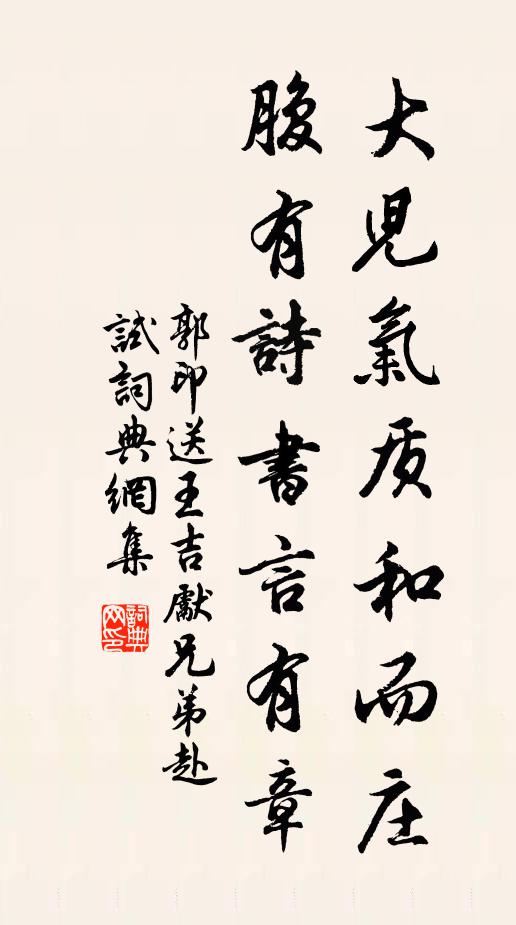 大児氣质和而庄
腹有詩書言有章
郭印送王吉獻兄弟赴
試詞典網集
詞典网印